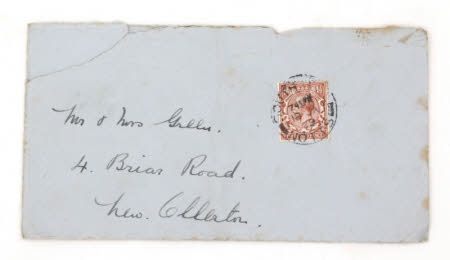 Mr & Mrs Green.
4. Briar Road.
New. Ollerton.